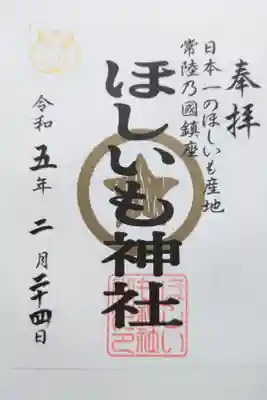 奉拝
日本一のほしいも産地
常陸乃國鎮座
ほしいも神社
令和五年二月二十四日